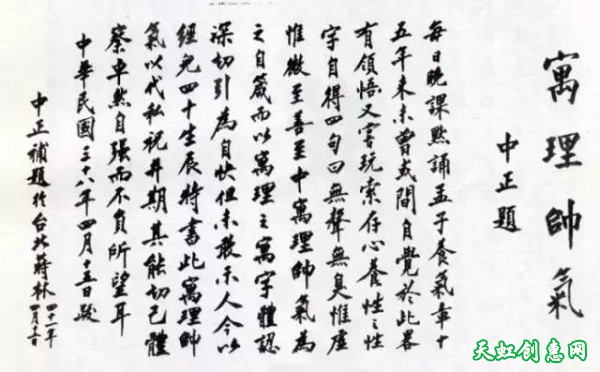 寓理帥氣
中正題
每日晚課默誦孟子養氣章十
五年來未曾或間自覺於此畧
有領悟又嘗玩索存心養性之性
字自得四句曰無聲無臭惟虛
惟微至善至中寓理帥氣為
之自箴而以寓理之寓字體認
深切引為自快但未敢示人今以
經兒四十生辰特書此寓理帥
氣以代私祝并期其能切己體
察卓然自強而不負所望耳
中華民國三十八年四月十五日題
中正補題於台北蔣林
四十一年
天虹创意网